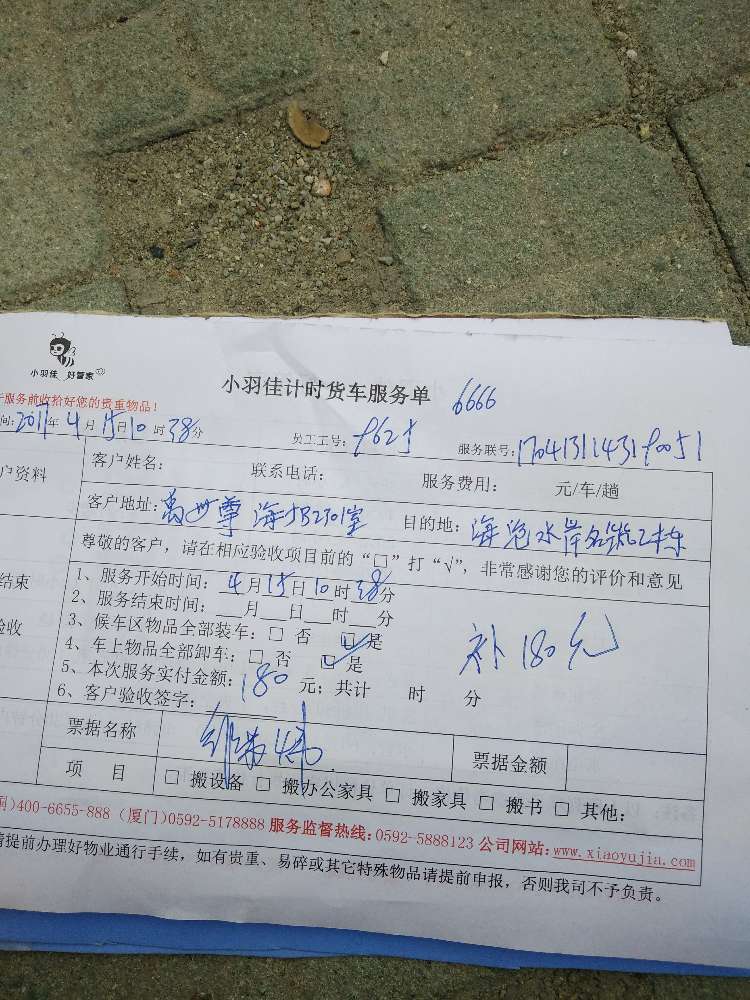 小羽佳 好管家
小羽佳计时货车服务单 6666
服务前收拾好您的贵重物品！
间：2017年4月15日10时38分 员工工号： 服务联号：
户资料 客户姓名： 联系电话： 服务费用： 元/车/趟
客户地址：万世尊 海 B2301室 目的地：海沧水岸名筑
尊敬的客户，请在相应验收项目前的“□”打“√”，非常感谢您的评价和意见
结束
验收
1、服务开始时间：4月15日10时38分
2、服务结束时间：___月___日___时___分
3、候车区物品全部装车：□ 否 □ 是
4、车上物品全部卸车：□ 否 ☑ 是
补180元
5、本次服务实付金额：180元；共计 时 分
6、客户验收签字：
票据名称 票据金额
项 目 □ 搬设备 □ 搬办公家具 □ 搬家具 □ 搬书 □ 其他：
)400-6655-888 (厦门)0592-5178888 服务监督热线：0592-5888123 公司网站：www.xiaoyujia.com
请提前办理好物业通行手续，如有贵重、易碎或其它特殊物品请提前申报，否则我司不予负责。